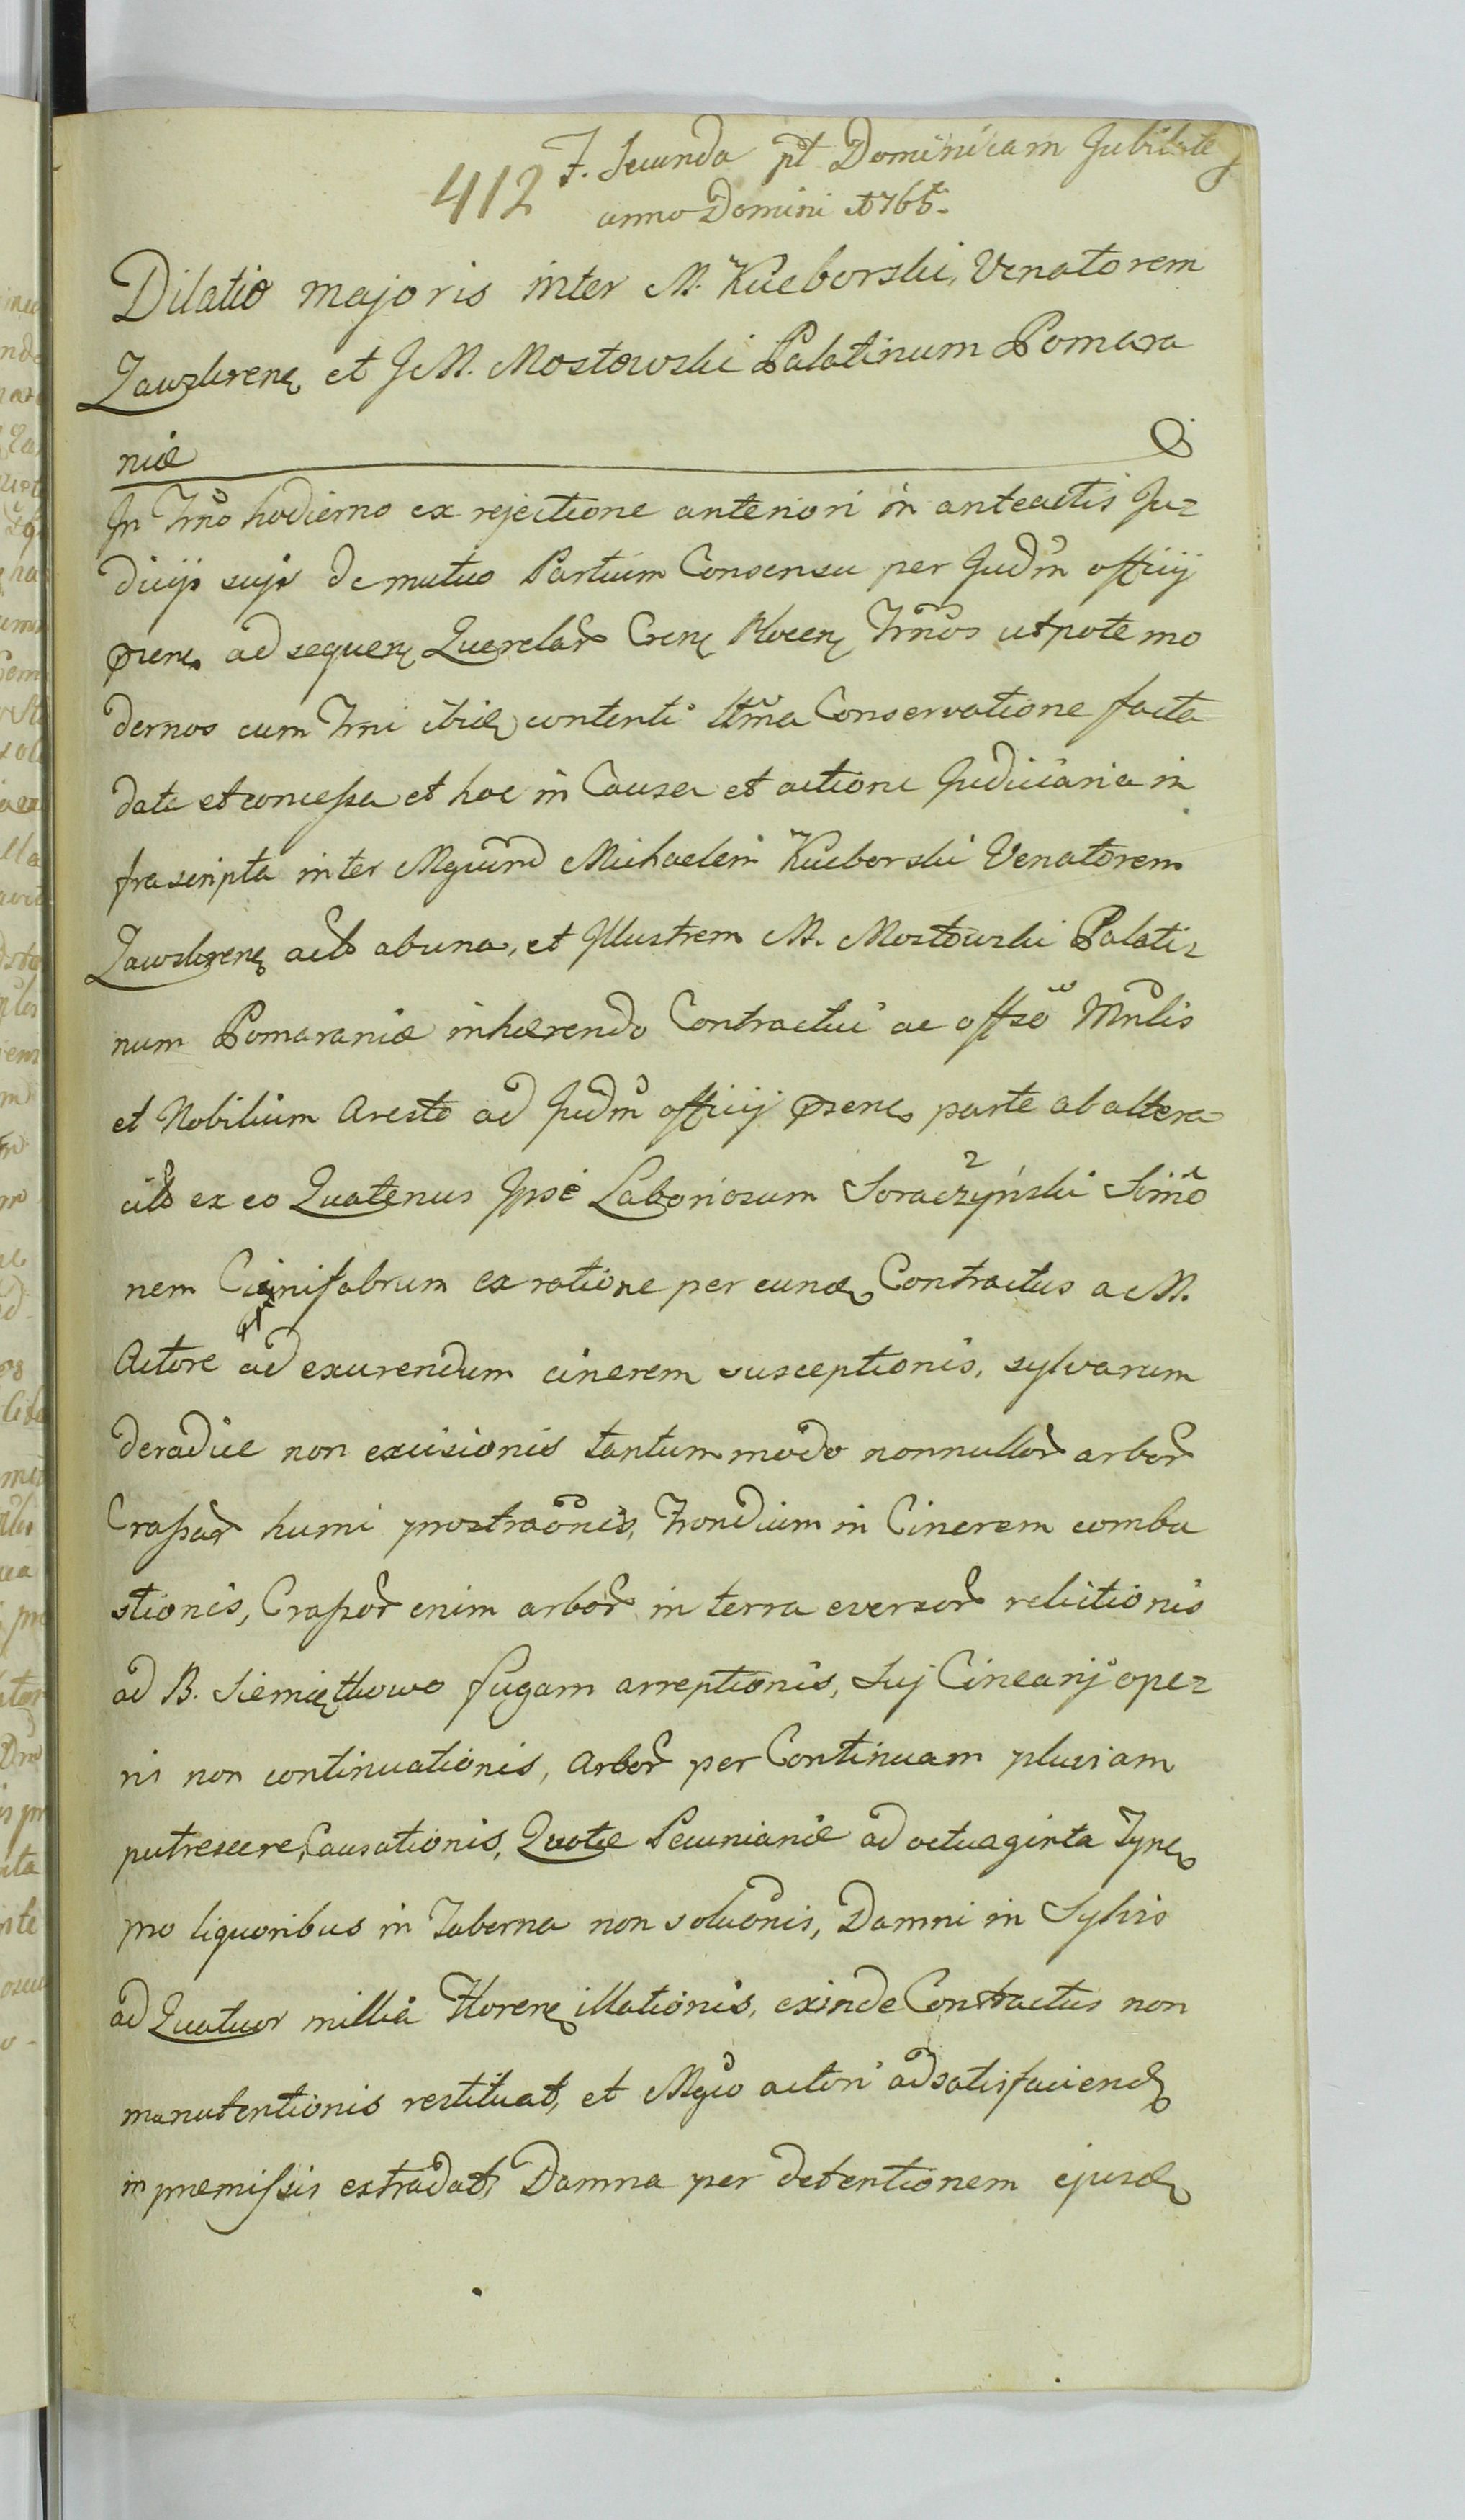 412 F. Secunda pt Dominicam Jubilate
anno Domini 1766.
Dilatio majoris inter M. Kueborski, Venatorem
Zawskrens et JM. Mostowski Palatinum Pomera
niæ
In Trno hodierno ex rejectione anteriori in anteactis Ju=
dicijs sujs de mutuo Partium Consensu per Judm officij
præns ad sequens Querelar Crens Plocens Trnos utpote mo
dernos cum Trni ibide contenti Conservatione facta
data et concessa et hoc in Causa et actione Judiciaria in
frascripta inter Mgcum Michaelem Kueborski Venatorem
Zawskrens ab una, et Jllustrem M. Mostowski Palati=
num Pomeraniæ inhærendo Contractui ac offso Mnlis
et Nobilium Aresto ad Judm officij præns parte ab altera
ex eo Quatenus Jpse Laboriosum Soraczyński Simo
nem Cinifabrum ex ratione per eund Contractus a M.
Actore ad exurendum cinerem susceptionis, sylvarum
de radice non excisionis tantummodo nonnullor arbor
Crassar humi prostraonis, Frondium in Cinerem combu
stionis, Crassor enim arbor in terra eversor relictionis
ad B. Siemiętkowo fugam arreptionis, Suj Cinearij ope=
ris non continuationis, Arbor per Continuam pluviam
putrescere, Causationis, Quotæ Pecuniariæ ad octuaginta Tynf
pro liquoribus in Taberna non soluonis, Damni in Sylvis
ad Quatuor millia Florens illationis, exinde Contractus non
manutentionis restituat, et Mgco actori ad satisfaciend
in præmissis extradat, Damna per detentionem ejusd